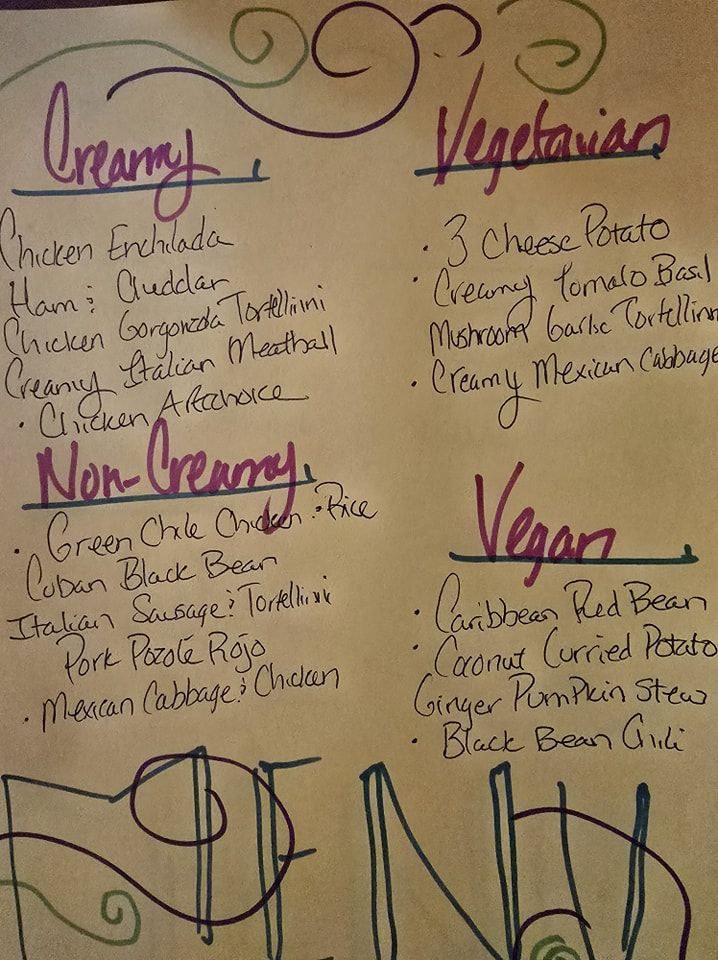 Creamy
Chicken Enchilada
Ham & Cheddar
Chicken Gorgonzola Tortellini
Creamy Italian Meatball
· Chicken Artichoice
Non-Creamy
· Green Chile Chicken & Rice
Cuban Black Bean
Italian Sausage & Tortellini
Pork Pozole Rojo
· Mexican Cabbage & Chicken
Vegetarian
· 3 Cheese Potato
· Creamy Tomato Basil
Mushroom Garlic Tortellini
· Creamy Mexican Cabbage
Vegan
· Caribbean Red Bean
· Coconut Curried Potato
Ginger Pumpkin Stew
· Black Bean Chili
MENU